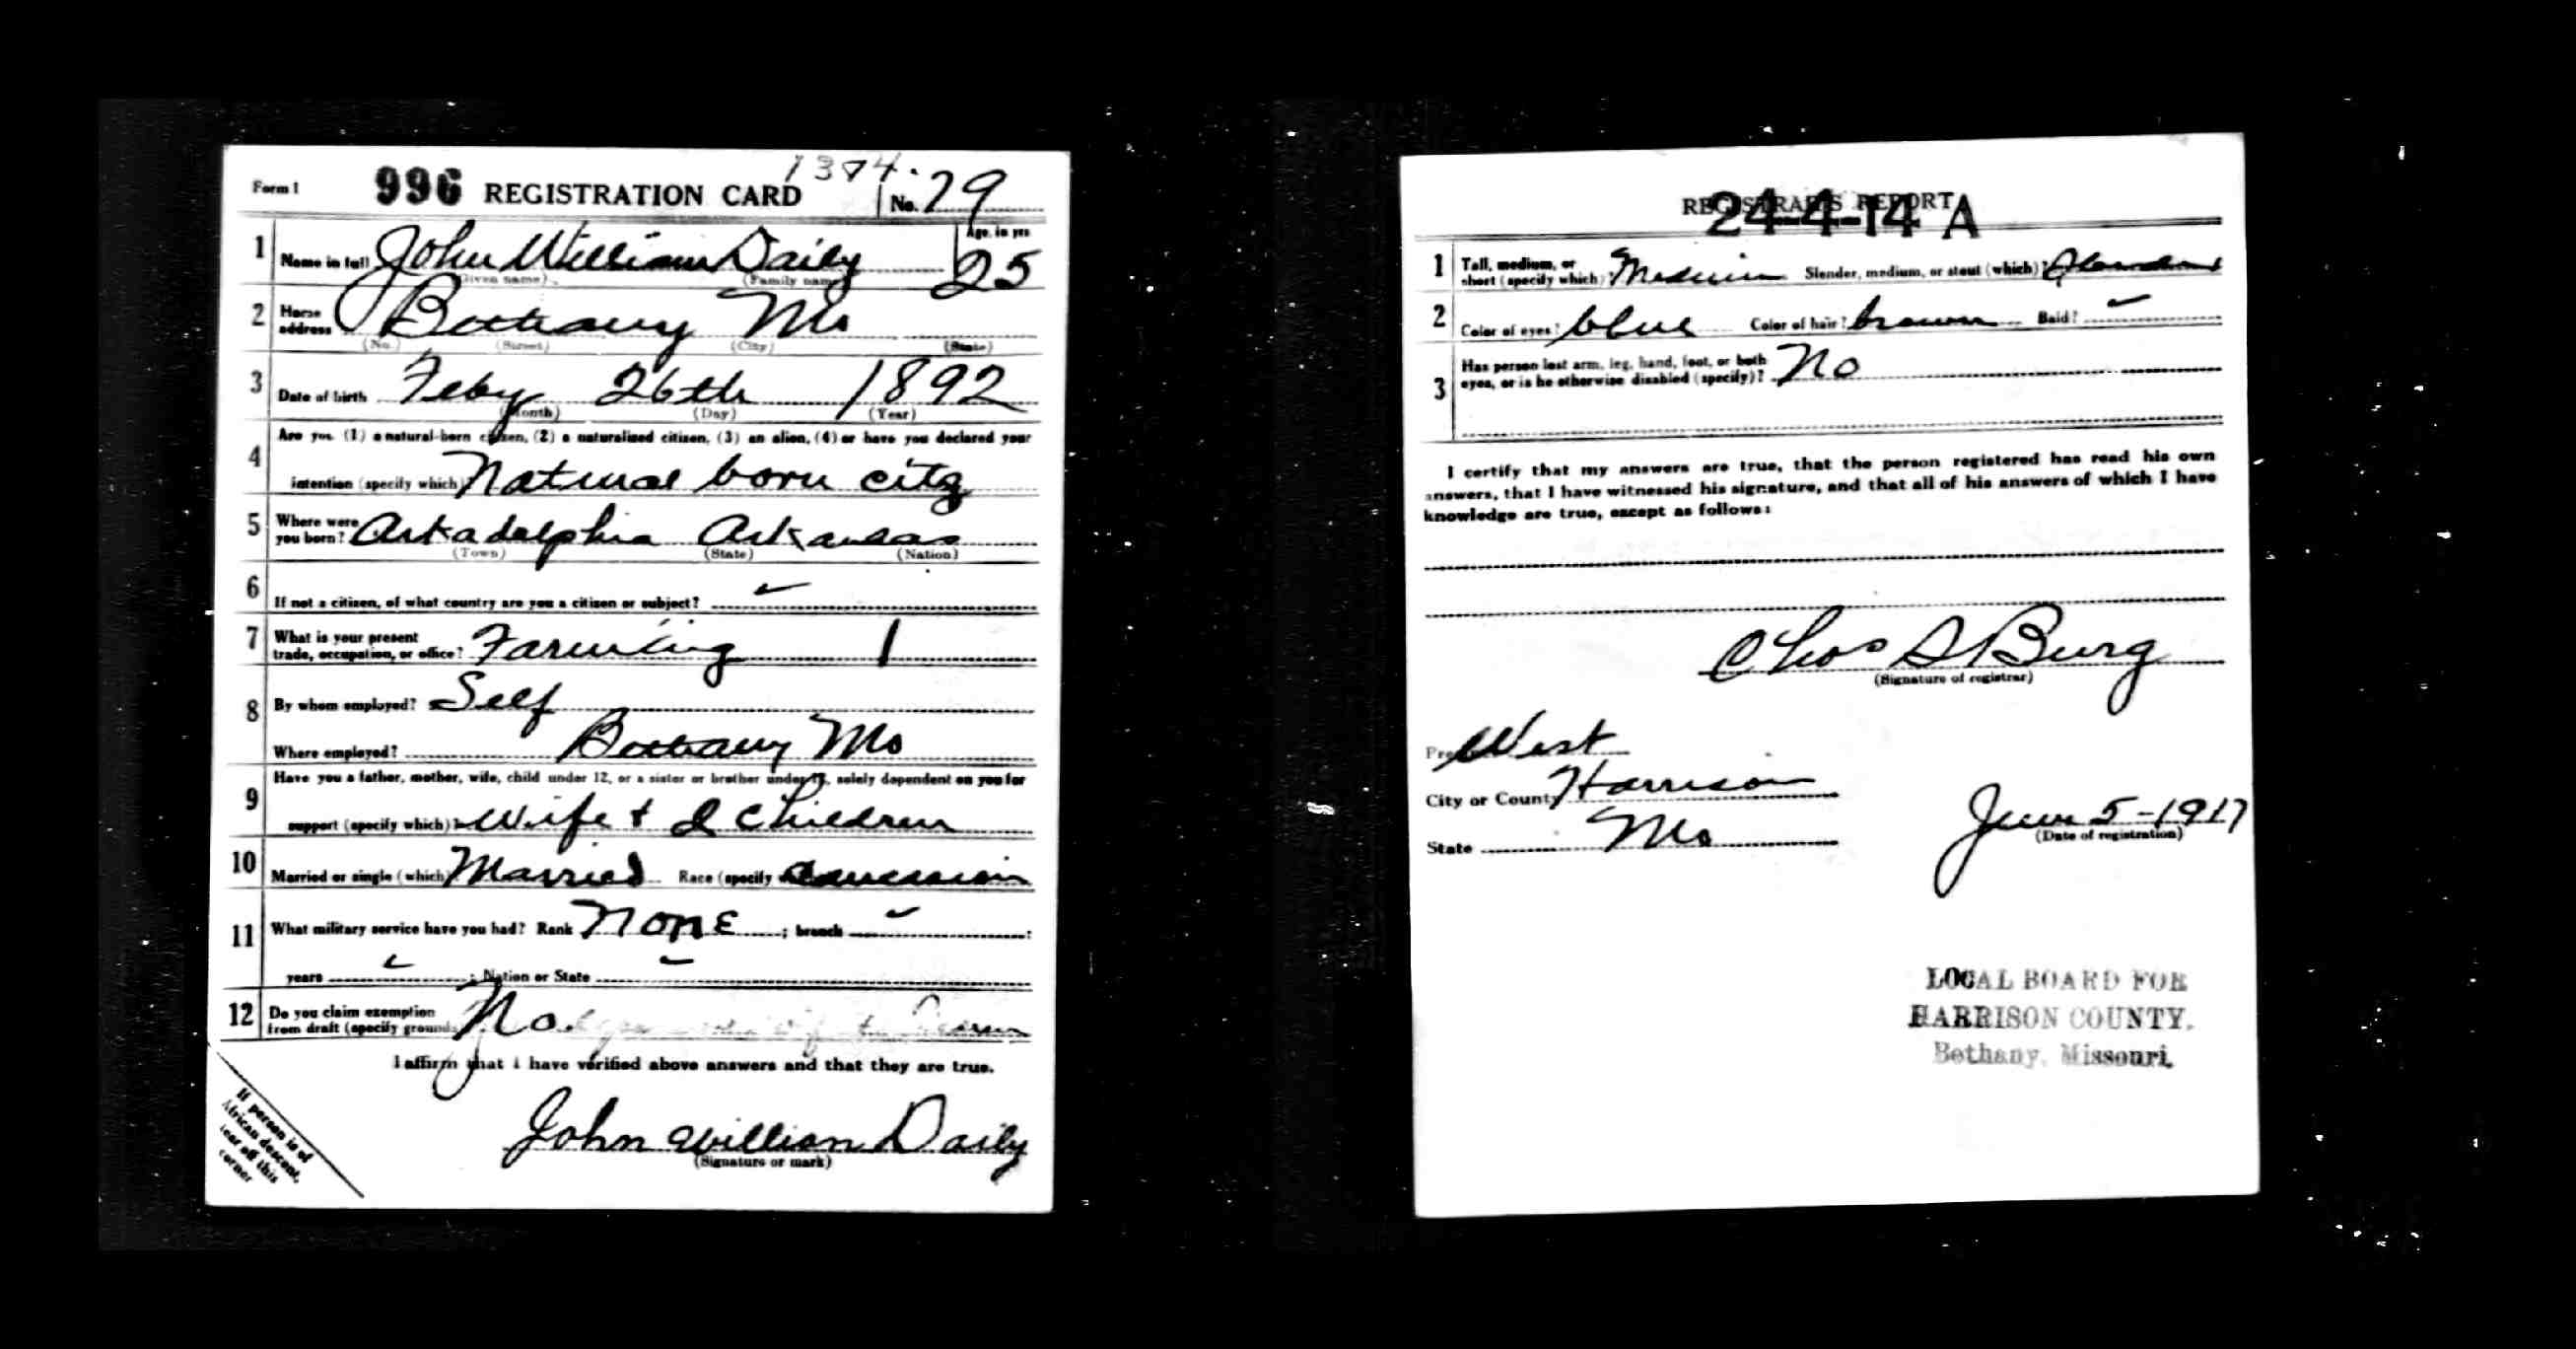 1374.
Form 1 996 REGISTRATION CARD No. 79
1 Name in full John William Daily Age, in yrs 25
(Given name) (Family name)
2 Home address Bethany Mo
(No.) (Street) (City) (State)
3 Date of birth Feby 26th 1892
(Month) (Day) (Year)
4 Are you (1) a natural-born citizen, (2) a naturalized citizen, (3) an alien, (4) or have you declared your
intention (specify which)? Natural born citz
5 Where were you born? Arkadelphia Arkansas
(Town) (State) (Nation)
6 If not a citizen, of what country are you a citizen or subject?
7 What is your present
trade, occupation, or office? Farming
8 By whom employed? Self
Where employed? Bethany Mo
9 Have you a father, mother, wife, child under 12, or a sister or brother under 12, solely dependent on you for
support (specify which)? Wife & 2 Children
10 Married or single (which)? Married Race (specify Caucasian
11 What military service have you had? Rank None ; branch ;
years ; Nation or State
12 Do you claim exemption
from draft (specify grounds No.
I affirm that I have verified above answers and that they are true.
John William Daily
(Signature or mark)
If person is of
African descent,
tear off this
corner
REGISTRAR'S REPORT
24-4-14 A
1 Tall, medium, or
short (specify which)? Medium Slender, medium, or stout (which)? Slender
2 Color of eyes? blue Color of hair? brown Bald?
3 Has person lost arm, leg, hand, foot, or both
eyes, or is he otherwise disabled (specify)? No
I certify that my answers are true, that the person registered has read his own
answers, that I have witnessed his signature, and that all of his answers of which I have
knowledge are true, except as follows:
Chas S Burg
(Signature of registrar)
West
City or County Harrison
State Mo
June 5-1917
(Date of registration)
LOCAL BOARD FOR
HARRISON COUNTY,
Bethany, Missouri.